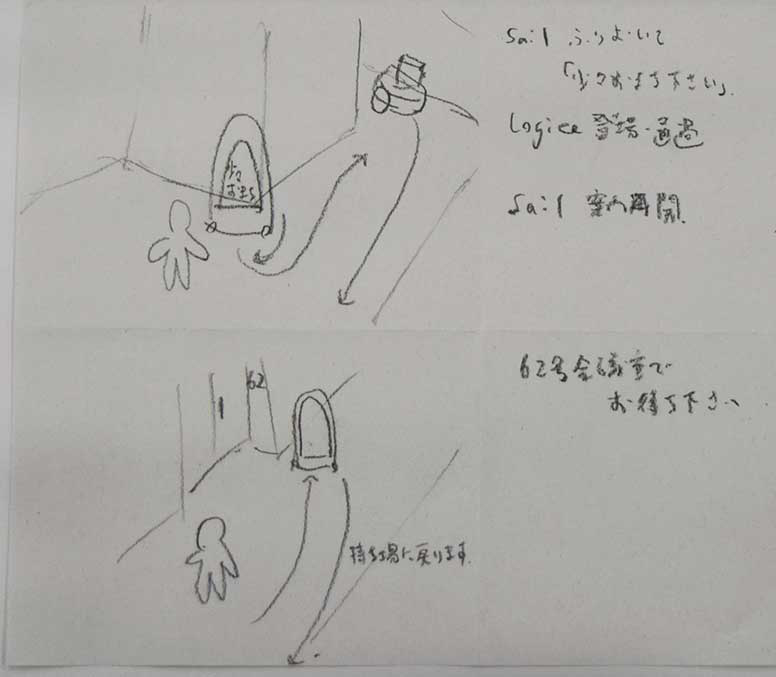 Sail ふりむいて
「少々お待ち下さい」.
Logiee 登場・通過
少々
お待ち
Sail 案内再開.
62号会議室で
お待ち下さい
1
62
持ち場に戻ります.